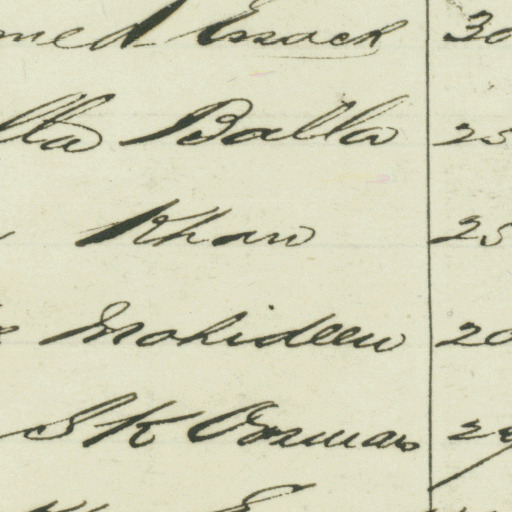 Essack 30
Balla 25
Khan 25
Mohideen 20
S K Osman